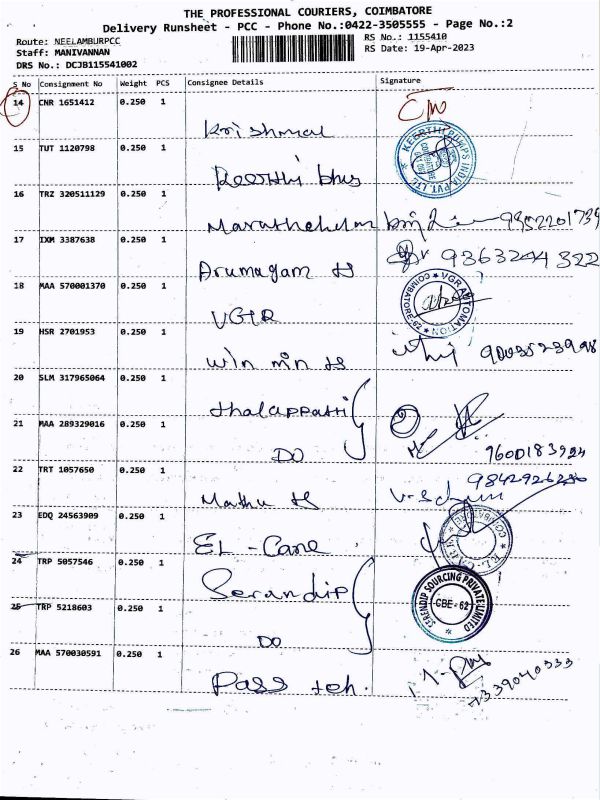 THE PROFESSIONAL COURIERS, COIMBATORE
Delivery Runsheet - PCC - Phone No.:0422-3505555 - Page No.:2
Route: NEELAMBURPCC
RS No.: 1155410
Staff: MANIVANNAN
RS Date: 19-Apr-2023
DRS No.: DCJB115541002
S No Consignment No Weight PCS Consignee Details Signature
14 CNR 1651412 0.250 1
15 TUT 1120798 0.250 1
KEERTHI PUMPS INDIA PVT. LTD.
16 TRZ 320511129 0.250 1
17 IXM 3387638 0.250 1
Arumugam 9363244322
18 MAA 570001370 0.250 1
VGR VGR AUTOMATION COIMBATORE-62
19 HSR 2701953 0.250 1
Win min
20 SLM 317965064 0.250 1
thalappatti
21 MAA 289329016 0.250 1
DO 9600183924
22 TRT 1057650 0.250 1
Mathu 9842926286
23 EDQ 24563909 0.250 1
EL - Care
24 TRP 5057546 0.250 1
Serandip SERENDIP SOURCING PRIVATE LIMITED CBE - 62
25 TRP 5218603 0.250 1
DO
26 MAA 570030591 0.250 1
Pass teh.